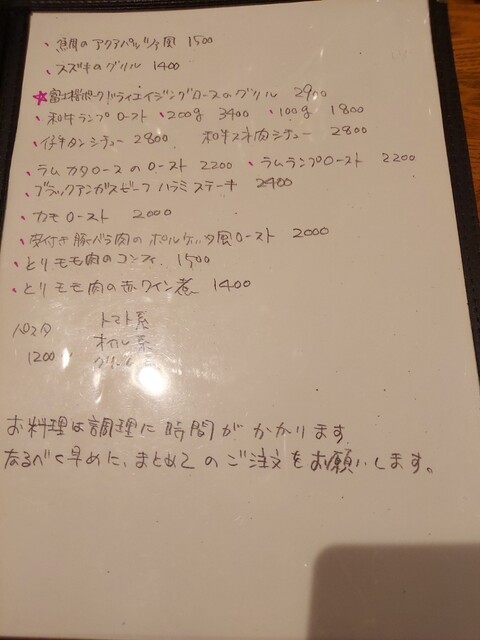 ・魚のアクアパッツァ風 1500
・スズキのグリル 1400
☆富士桜ポークドライエイジングロースのグリル 2900
・和牛ランプロースト ・200g 3400 ・100g 1800
・仔牛タンシチュー 2800 和牛スネ肉シチュー 2800
・ラムカタロースのロースト 2200 ・ラムランプロースト 2200
・ブラックアンガスビーフハラミステーキ 2400
・カモロースト 2000
・皮付き豚バラ肉のポルケッタ風ロースト 2000
・とりモモ肉のコンフィ 1500
・とりモモ肉の赤ワイン煮 1400
パスタ トマト系
オイル系
1200 クリーム系
お料理は調理に時間がかかります
なるべく早めに、まとめてのご注文をお願いします。